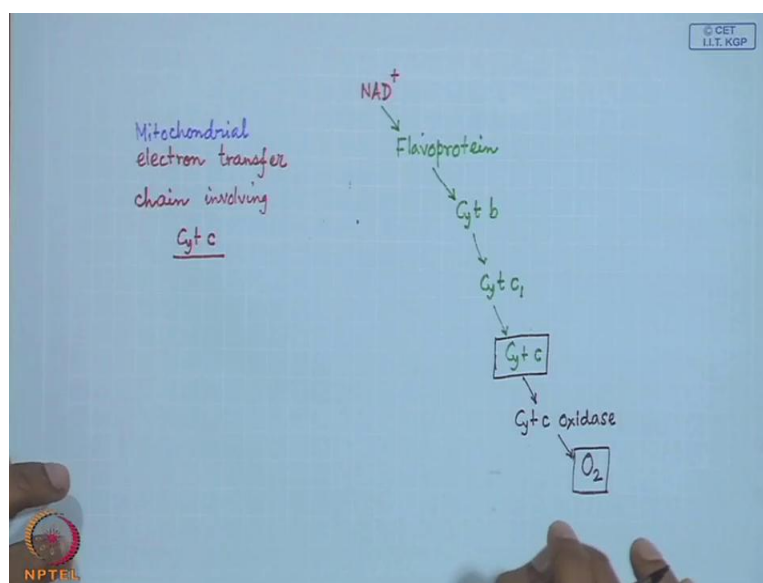 © CET
I.I.T. KGP
NAD⁺
Mitochondrial
electron transfer
chain involving
Cyt c
Flavoprotein
Cyt b
Cyt c₁
Cyt c
Cyt c oxidase
O₂
NPTEL